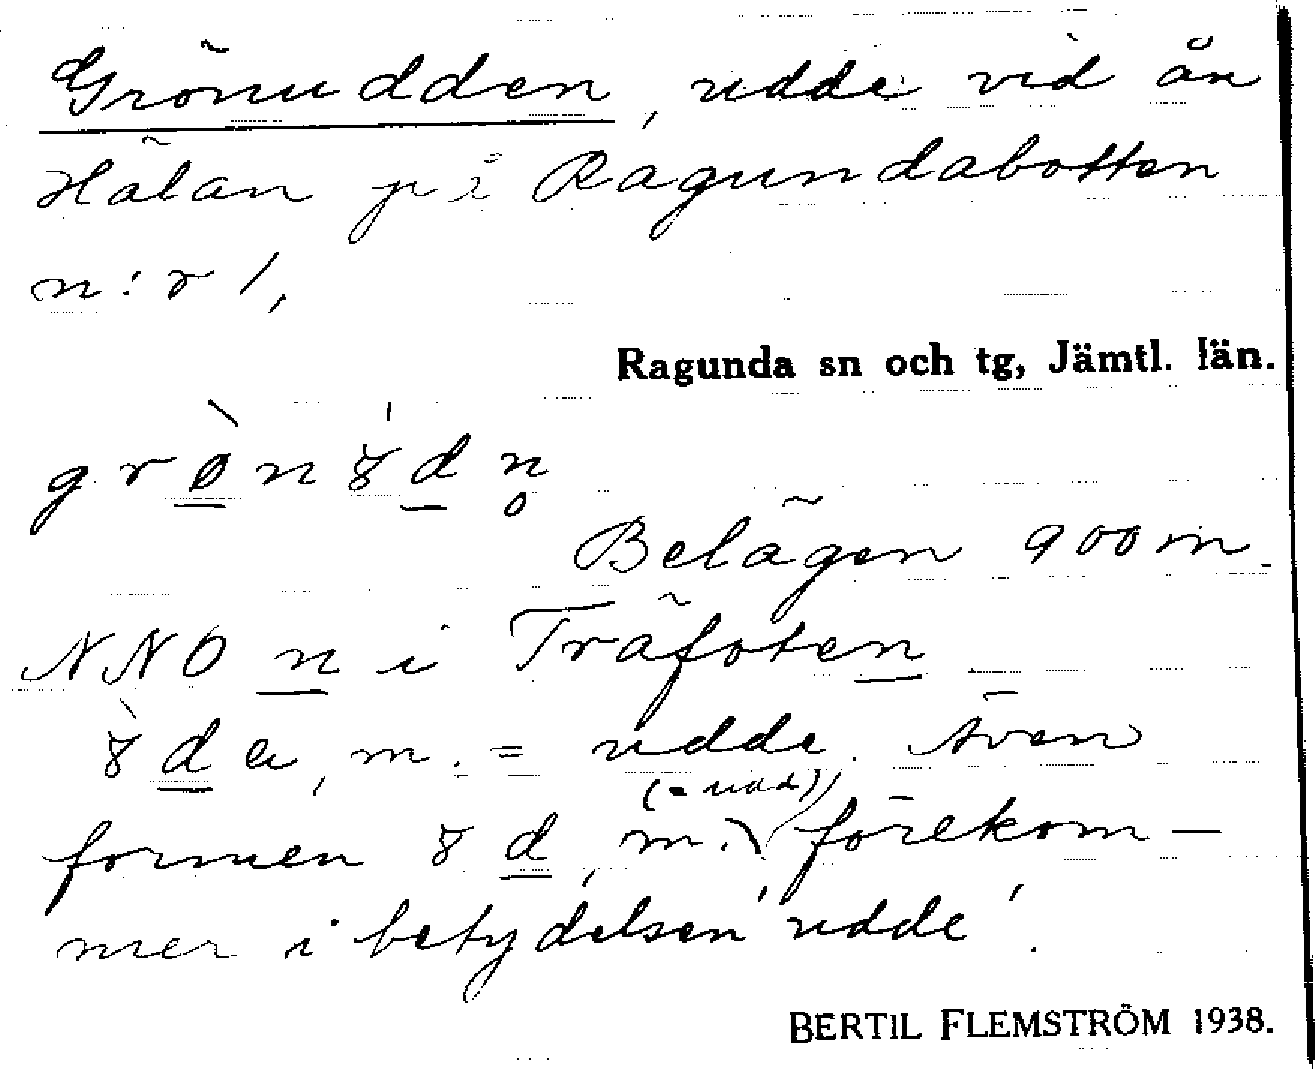 Grönudden, udde vid ån
Hålan på Ragundabotten
n:r 1,
Ragunda sn och tg, Jämtl. län.
grø̀nȣ́dn̥
Belägen 900 m
NNO n i Träfoten
ȣ̀da, m. = udde. Även
formen ȣd, m. (= udd) förekom-
mer i betydelsen 'udde'.
BERTIL FLEMSTRÖM 1938.